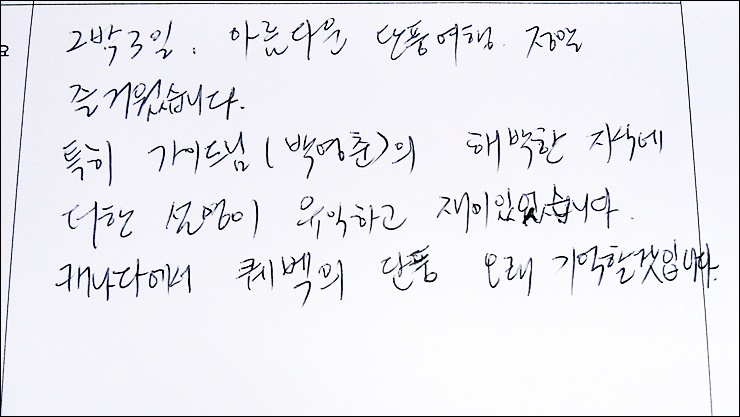 요
2박3일. 아름다운 단풍여행. 정말
즐거웠습니다.
특히 가이드님(박영춘)의 해박한 지식에
더한 설명이 유익하고 재미있었습니다.
캐나다에서 퀘벡의 단풍 오래 기억할것입니다.